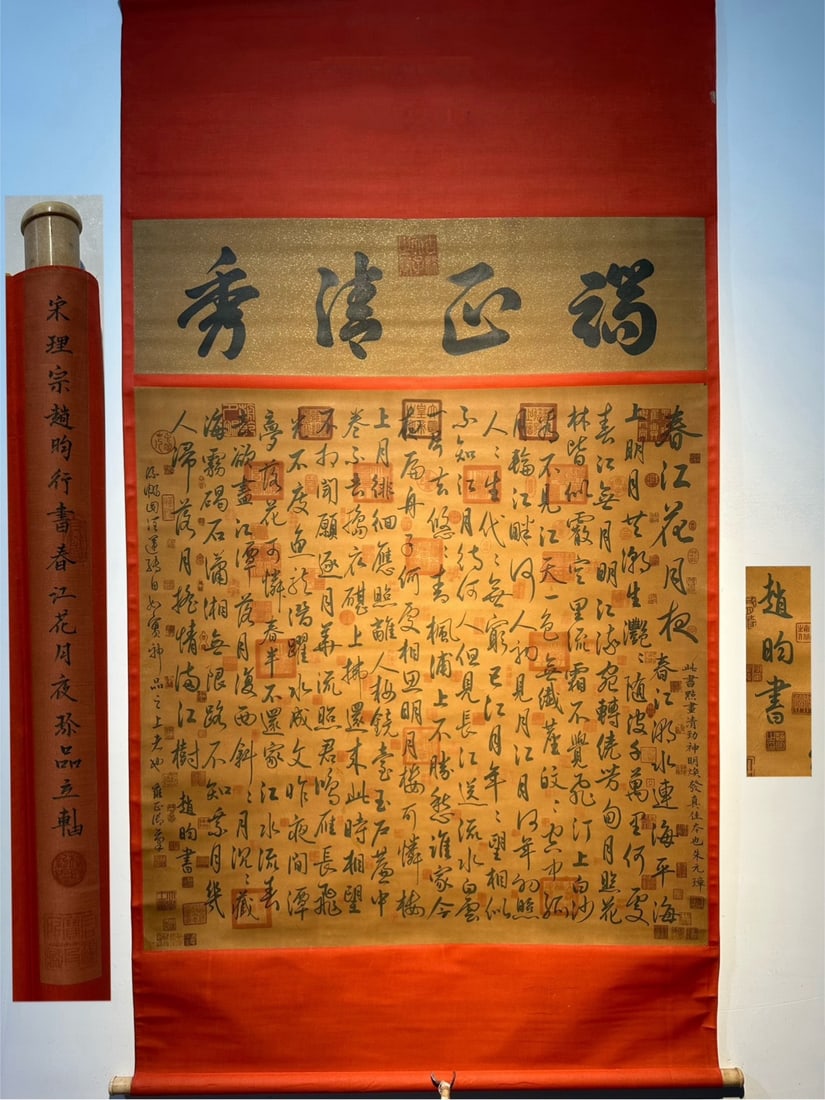 端正清秀
宋理宗趙昀行書春江花月夜珍品立軸
春江花月夜
春江潮水連海平海
上明月共潮生灩〻隨波千萬里何處
春江無月明江流宛轉繞芳甸月照花
林皆似霰空里流霜不覺飛汀上白沙
看不見江天一色無纖塵皎〻空中孤
月輪江畔何人初見月江月何年初照
人〻生代〻無窮已江月年〻望相似
不知江月待何人但見長江送流水白雲
一片去悠〻青楓浦上不勝愁誰家今
夜扁舟子何處相思明月樓可憐樓
上月徘徊應照離人妝鏡臺玉戶簾中
卷不去擣衣砧上拂還來此時相望
不相聞願逐月華流照君鴻雁長飛
光不度魚龍潛躍水成文昨夜間潭
夢落花可憐春半不還家江水流春
去欲盡江潭落月復西斜〻月沉〻藏
海霧碣石瀟湘無限路不知乘月幾
人歸落月搖情滿江樹
趙昀書
此書點畫清勁神明煥發真佳本也朱元璋
趙昀書